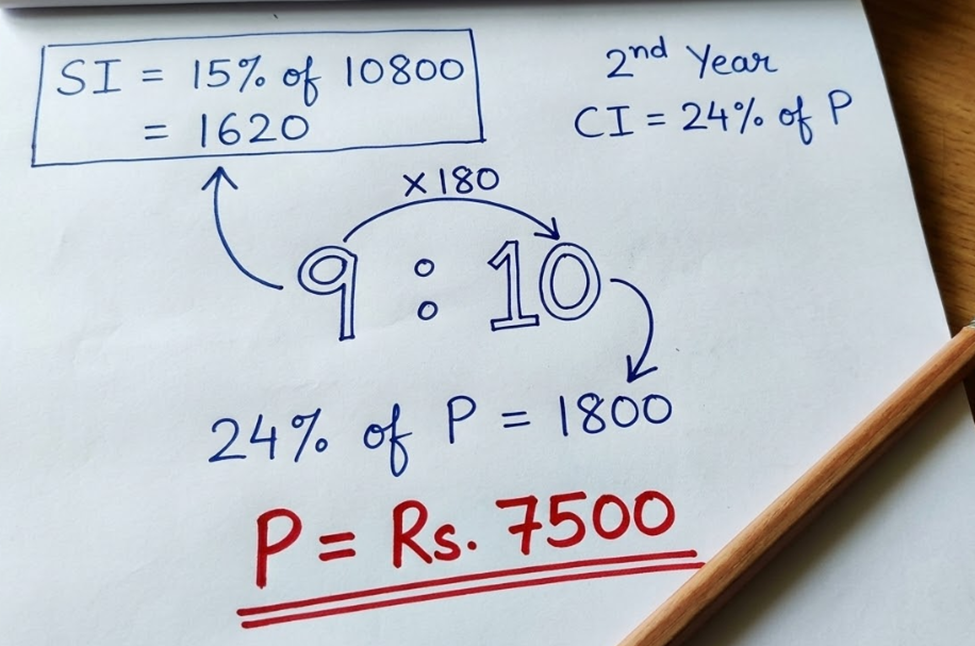 SI = 15% of 10800
= 1620
2nd Year
CI = 24% of P
×180
9 : 10
24% of P = 1800
P = Rs. 7500